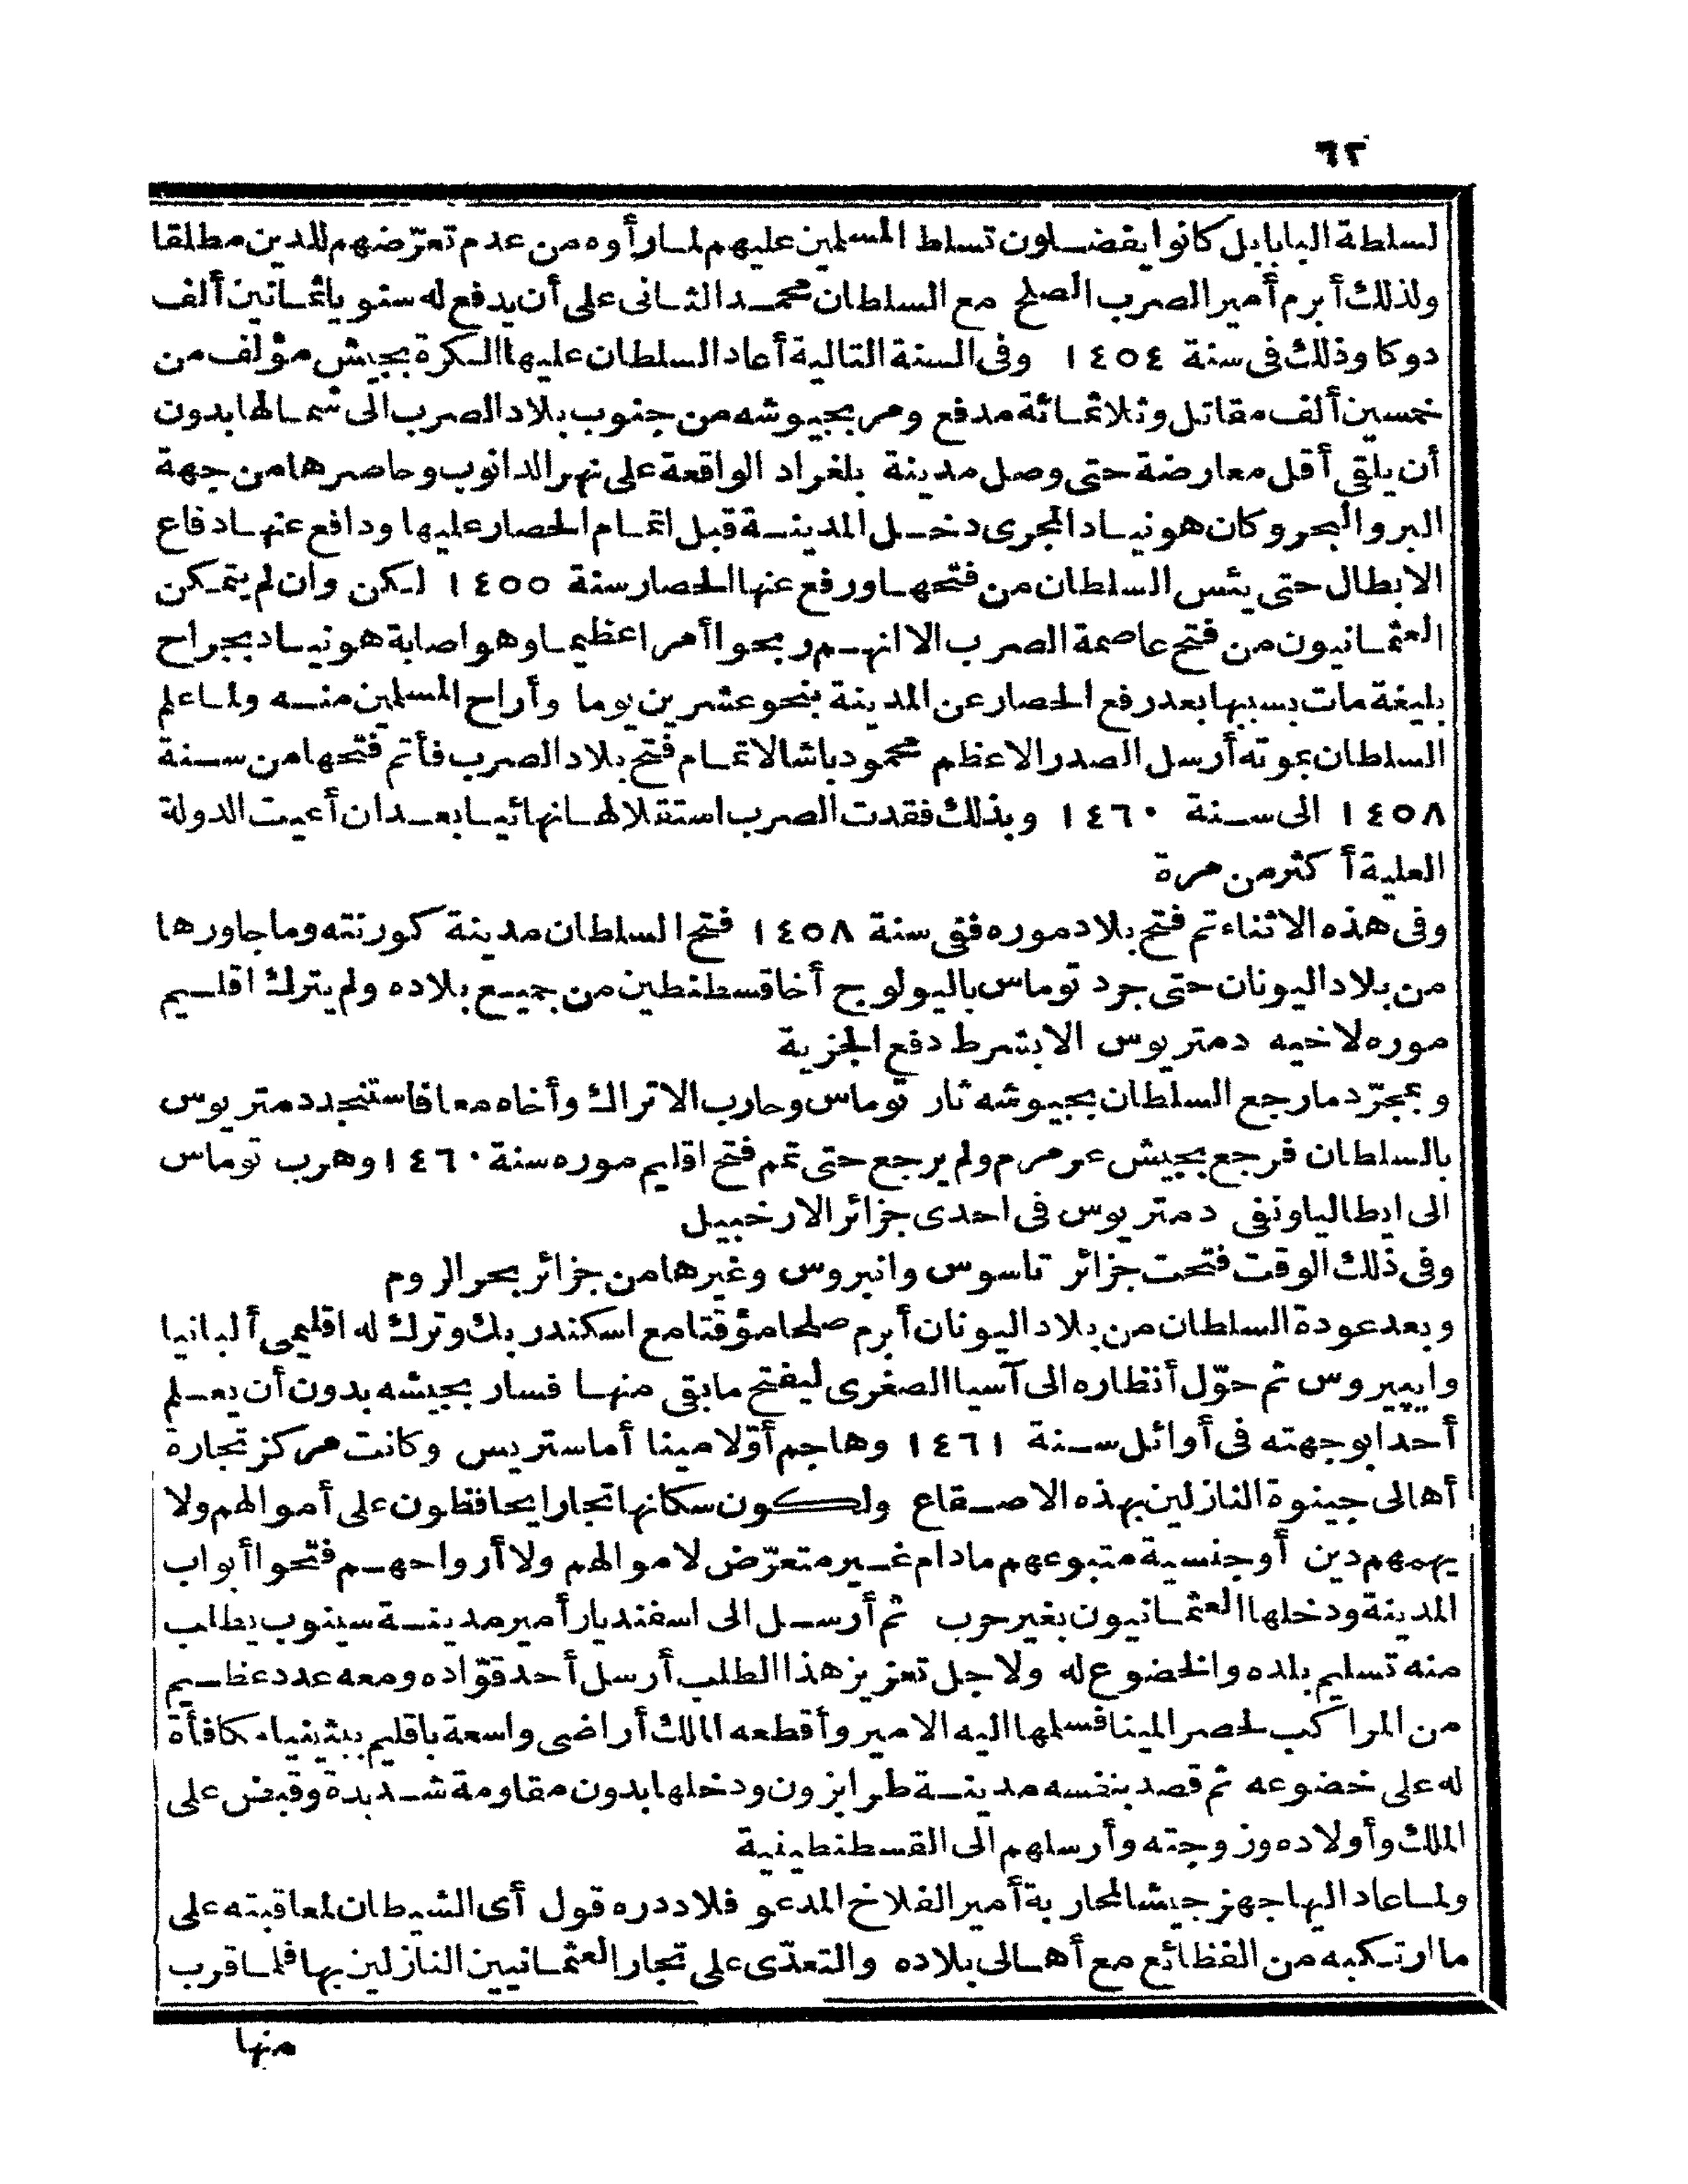 ٦٢
لسلطة البابا بل كانوا يفضلون تسلط المسلمين عليهم لما رأوه من عدم تعرّضهم للدين مطلقا
ولذلك أبرم أمير الصرب الصلح مع السلطان محمد الثانى على أن يدفع له سنويا ثمانين ألف
دوكا وذلك فى سنة ١٤٥٤ وفى السنة التالية أعاد السلطان عليها الكرة بجيش مؤلف من
خمسين ألف مقاتل وثلاثمائة مدفع ومر بجيوشه من جنوب بلاد الصرب الى شمالها بدون
أن يلقى أقل معارضة حتى وصل مدينة بلغراد الواقعة على نهر الدانوب وحاصرها من جهة
البر والبحر وكان هونياد المجرى دخل المدينة قبل اتمام الحصار عليها ودافع عنها دفاع
الابطال حتى يئس السلطان من فتحها ورفع عنها الحصار سنة ١٤٥٥ لكن وان لم يتمكن
العثمانيون من فتح عاصمة الصرب الا انهم ربحوا أمرا عظيما وهو اصابة هونياد بجراح
بليغة مات بسببها بعد رفع الحصار عن المدينة بنحو عشرين يوما وأراح المسلمين منه ولما علم
السلطان بموته أرسل الصدر الاعظم محمود باشا لاتمام فتح بلاد الصرب فأتم فتحها من سنة
١٤٥٨ الى سنة ١٤٦٠ وبذلك فقدت الصرب استقلالها نهائيا بعد ان أعيت الدولة
العلية أكثر من مرة
وفى هذه الاثناء تم فتح بلاد موره ففى سنة ١٤٥٨ فتح السلطان مدينة كورنته وما جاورها
من بلاد اليونان حتى جرد توماس باليولوج أخا قسطنطين من جميع بلاده ولم يترك اقليم
موره لاخيه دمتريوس الا بشرط دفع الجزية
وبمجرّد ما رجع السلطان بجيوشه ثار توماس وحارب الاتراك وأخاه معا فاستنجد دمتريوس
بالسلطان فرجع بجيش عرمرم ولم يرجع حتى تمم فتح اقليم موره سنة ١٤٦٠ وهرب توماس
الى ايطاليا ونفى دمتريوس فى احدى جزائر الارخبيل
وفى ذلك الوقت فتحت جزائر تاسوس وانبروس وغيرها من جزائر بحر الروم
وبعد عودة السلطان من بلاد اليونان أبرم صلحا مؤقتا مع اسكندر بك وترك له اقليمى ألبانيا
وايبيروس ثم حوّل أنظاره الى آسيا الصغرى ليفتح ما بقى منها فسار بجيشه بدون أن يعلم
أحدا بوجهته فى أوائل سنة ١٤٦١ وهاجم أوّلا مينا أماستريس وكانت مركز تجارة
أهالى جينوة النازلين بهذه الاصقاع ولكون سكانها تجارا يحافظون على أموالهم ولا
يهمهم دين أو جنسية متبوعهم مادام غير متعرّض لاموالهم ولا أرواحهم فتحوا أبواب
المدينة ودخلها العثمانيون بغير حرب ثم أرسل الى اسفنديار أمير مدينة سينوب يطلب
منه تسليم بلده والخضوع له ولاجل تعزيز هذا الطلب أرسل أحد قوّاده ومعه عدد عظيم
من المراكب لحصر المينا فسلمها اليه الامير وأقطعه الملك أراضى واسعة باقليم بيثينيا مكافأة
له على خضوعه ثم قصد بنفسه مدينة طرابزون ودخلها بدون مقاومة شديدة وقبض على
الملك وأولاده وزوجته وأرسلهم الى القسطنطينية
ولما عاد اليها جهز جيشا لمحاربة أمير الفلاخ المدعو فلاد دره قول أى الشيطان لمعاقبته على
ما ارتكبه من الفظائع مع أهالى بلاده والتعدّى على تجار العثمانيين النازلين بها فلما قرب
منها